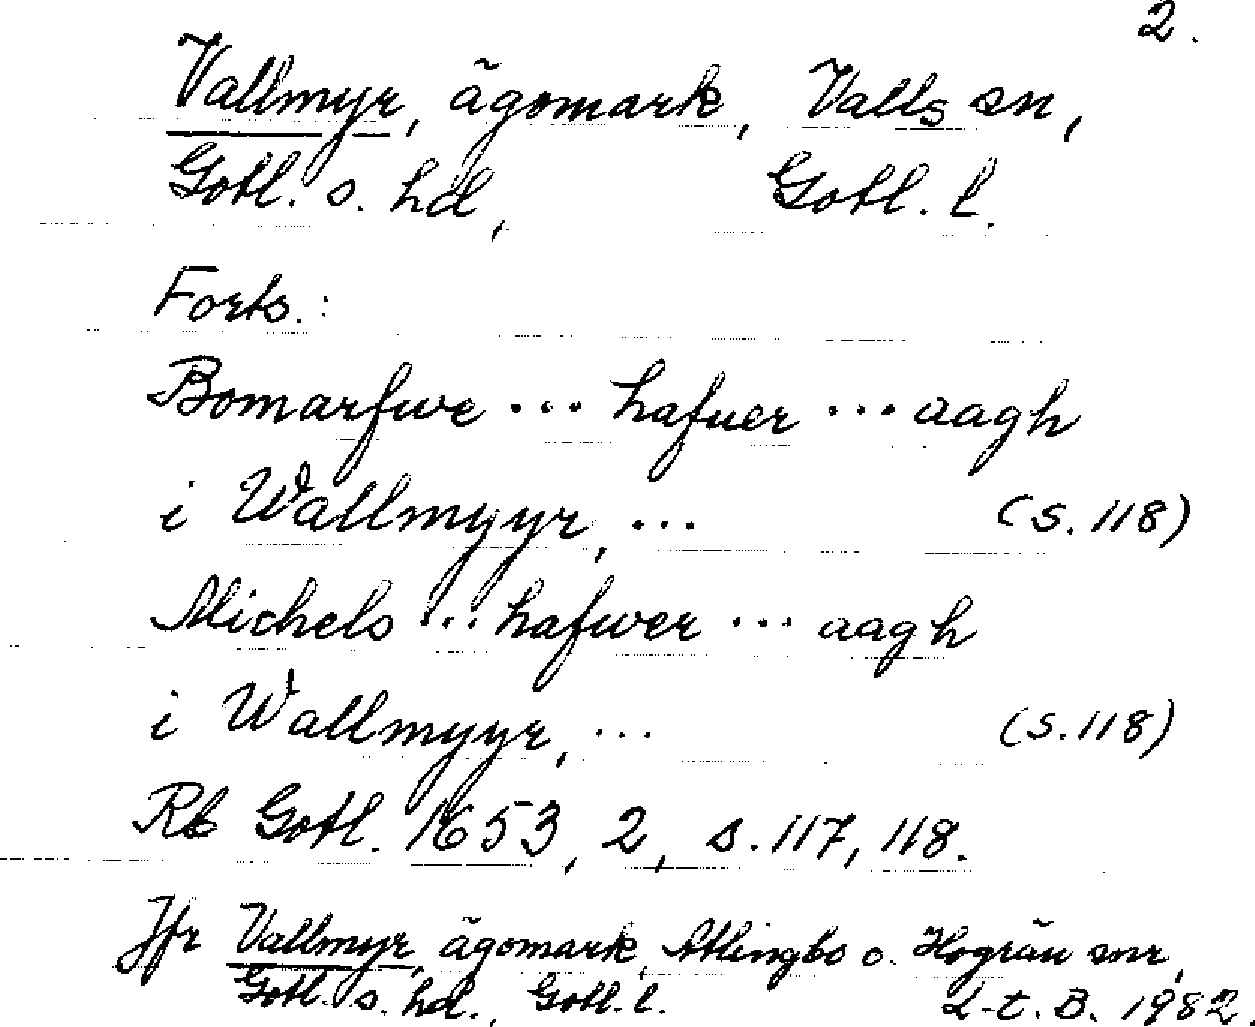 2.
Vallmyr, ägomark, Valls sn,
Gotl. s. hd, Gotl. l.
Forts.:
Bomarfwe ... hafuer ... aagh
i Wallmyyr, ... (s. 118)
Michels ... hafwer ... aagh
i Wallmyyr, ... (s. 118)
Rb Gotl. 1653, 2, s. 117, 118.
Jfr Vallmyr, ägomark, Atlingbo o. Hogrän snr,
Gotl. s. hd., Gotl. l. L-t. B. 1982.